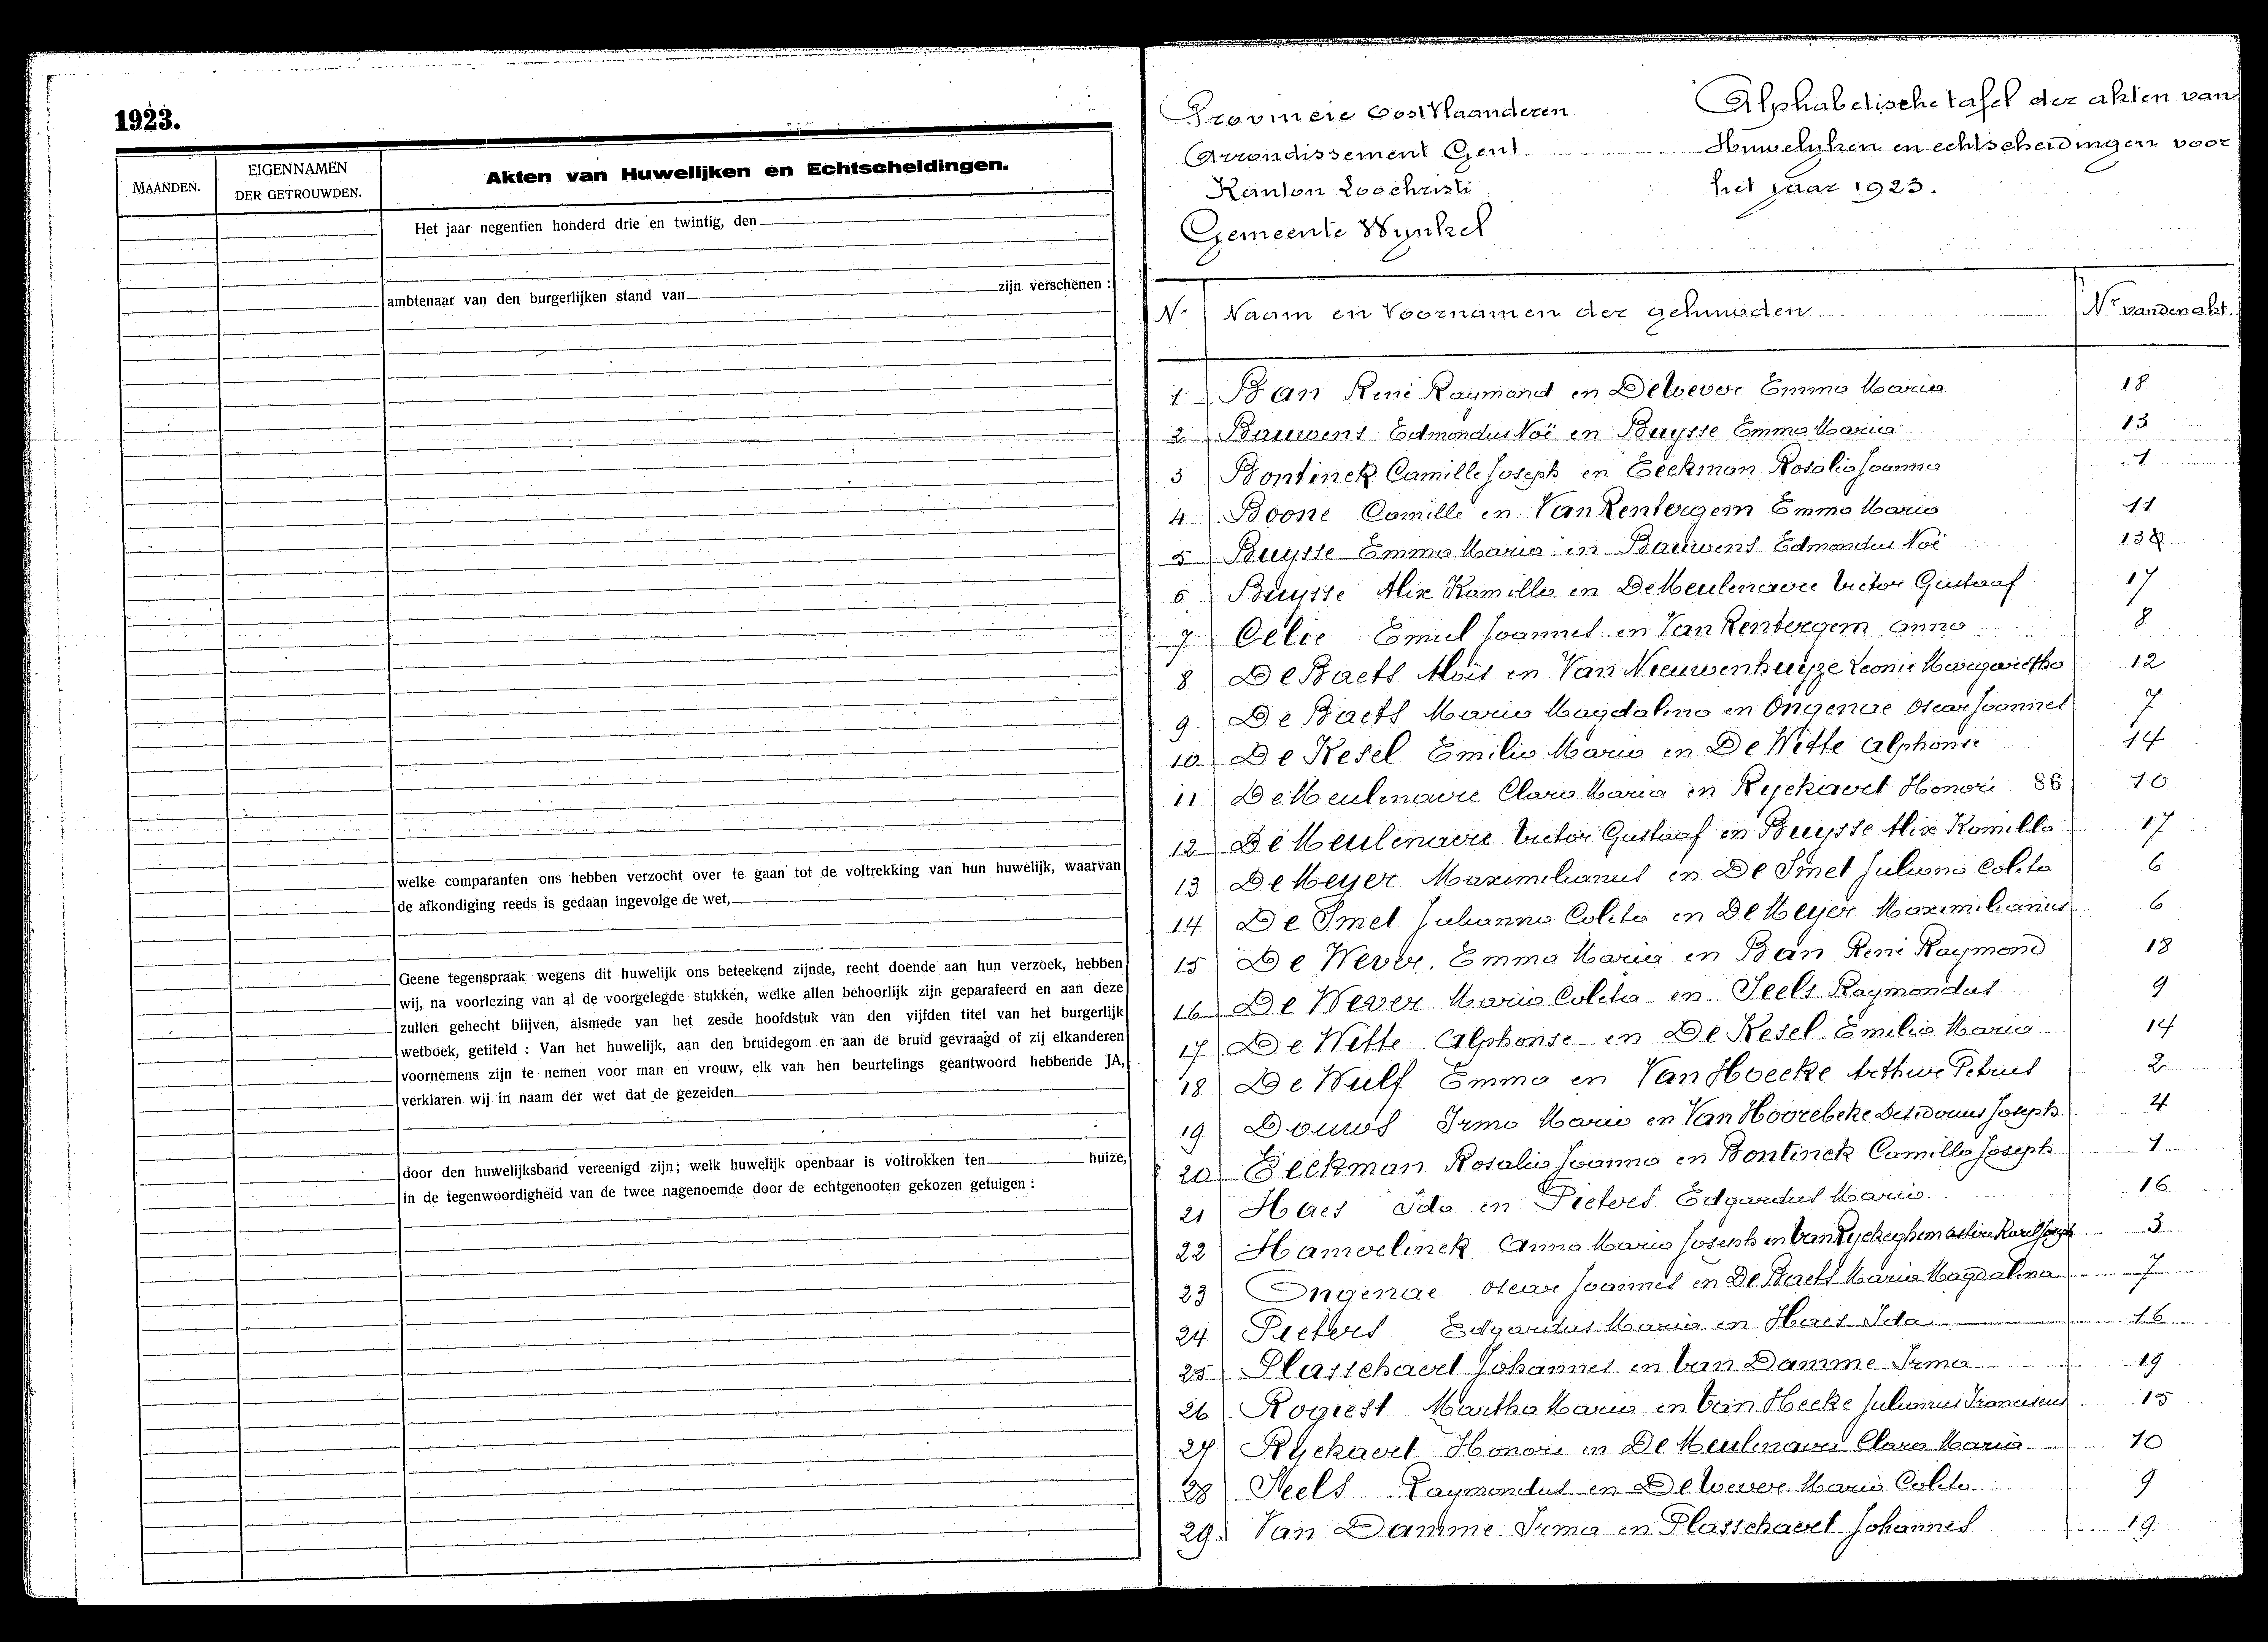 1923.
MAANDEN.
EIGENNAMEN
DER GETROUWDEN.
Akten van Huwelijken en Echtscheidingen.
Het jaar negentien honderd drie en twintig, den
ambtenaar van den burgerlijken stand van zijn verschenen :
welke comparanten ons hebben verzocht over te gaan tot de voltrekking van hun huwelijk, waarvan
de afkondiging reeds is gedaan ingevolge de wet,
Geene tegenspraak wegens dit huwelijk ons beteekend zijnde, recht doende aan hun verzoek, hebben
wij, na voorlezing van al de voorgelegde stukken, welke allen behoorlijk zijn geparafeerd en aan deze
zullen gehecht blijven, alsmede van het zesde hoofdstuk van den vijfden titel van het burgerlijk
wetboek, getiteld : Van het huwelijk, aan den bruidegom en aan de bruid gevraagd of zij elkanderen
voornemens zijn te nemen voor man en vrouw, elk van hen beurtelings geantwoord hebbende JA,
verklaren wij in naam der wet dat de gezeiden
door den huwelijksband vereenigd zijn; welk huwelijk openbaar is voltrokken ten huize,
in de tegenwoordigheid van de twee nagenoemde door de echtgenooten gekozen getuigen :
Provincie Oost Vlaanderen
Arrondissement Gent
Kanton Loochristi
Gemeente Wynkel
Alphabetische tafel der akten van
Huwelyken en echtscheidingen voor
het jaar 1923.
N. Naam en Voornamen der gehuwden Nr van den akt.
1 Ban René Raymond en De Wever Emma Maria 18
2 Bauwens Edmondus Noë en Buysse Emma Maria 13
3 Bontinck Camille Joseph en Eeckman Rosalia Joanna 1
4 Boone Camille en Van Rentergem Emma Maria 11
5 Buysse Emma Maria en Bauwens Edmondus Noë 13
6 Buysse Alix Kamilla en De Meulenaere Victor Gustaaf 17
7 Celie Emiel Joannes en Van Rentergem Anna 8
8 De Baets Aloïs en Van Nieuwenhuyze Leonie Margaretha 12
9 De Baets Maria Magdalena en Ongenae Oscar Joannes 7
10 De Kesel Emilia Maria en De Witte Alphonse 14
11 De Meulenaere Clara Maria en Ryckaert Honoré 86 10
12 De Meulenaere Victor Gustaaf en Buysse Alix Kamilla 17
13 De Meyer Maximilianus en De Smet Juliana Coleta 6
14 De Smet Julianna Coleta en De Meyer Maximilianus 6
15 De Wever Emma Maria en Ban René Raymond 18
16 De Wever Maria Coleta en Seels Raymondus 9
17 De Witte Alphonse en De Kesel Emilia Maria 14
18 De Wulf Emma en Van Hoecke Arthur Petrus 2
19 Douws Irma Maria en Van Hoorebeke Desiderius Joseph 4
20 Eeckman Rosalia Joanna en Bontinck Camille Joseph 1
21 Haes Ida en Pieters Edgardus Maria 16
22 Hamerlinck Anna Maria Joseph en Van Ryckeghem Karel Joseph 3
23 Ongenae Oscar Joannes en De Baets Maria Magdalena 7
24 Pieters Edgardus Maria en Haes Ida 16
25 Plasschaert Johannes en Van Damme Irma 19
26 Rogiest Martha Maria en Van Hecke Julianus Franciscus 15
27 Ryckaert Honoré en De Meulenaere Clara Maria 10
28 Seels Raymondus en De Wever Maria Coleta 9
29. Van Damme Irma en Plasschaert Johannes 19